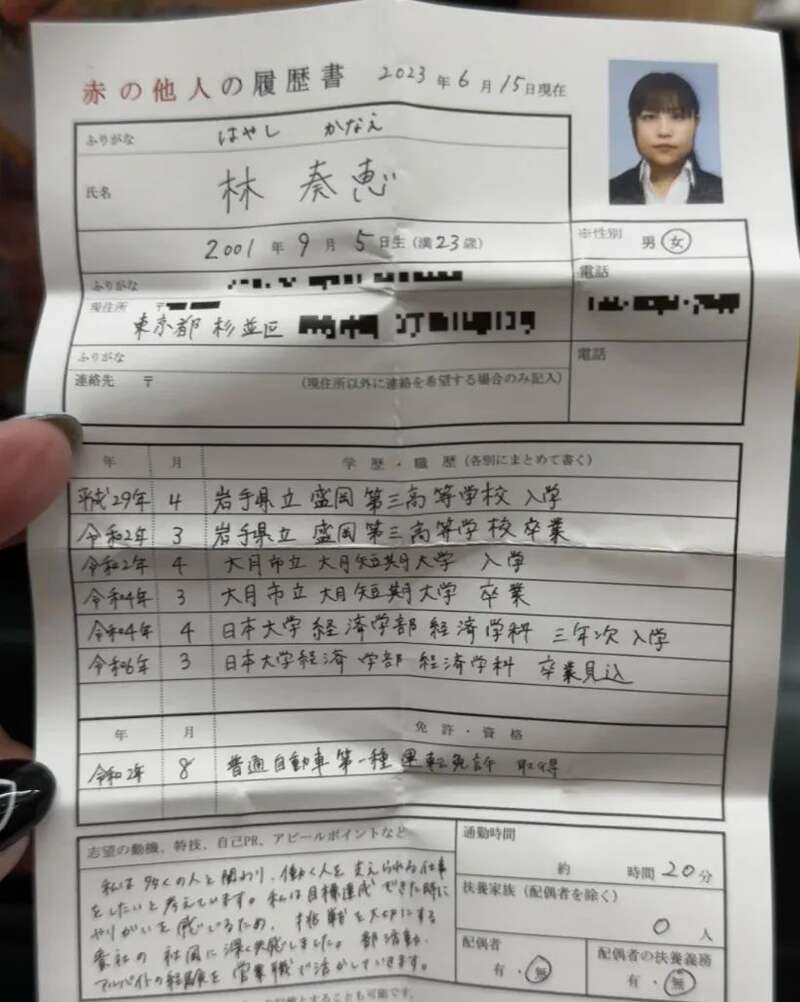 赤の他人の履歴書 2023年6月15日現在
ふりがな はやし かなえ
氏名 林 奏恵
2001年9月5日生(満23歳)
※性別 男 女
ふりがな
電話
現住所 〒
東京都 杉並区
ふりがな
電話
連絡先 〒 (現住所以外に連絡を希望する場合のみ記入)
年 月 学歴・職歴(各別にまとめて書く)
平成29年 4 岩手県立 盛岡第三高等学校 入学
令和2年 3 岩手県立 盛岡第三高等学校 卒業
令和2年 4 大月市立 大月短期大学 入学
令和4年 3 大月市立 大月短期大学 卒業
令和4年 4 日本大学 経済学部 経済学科 三年次 入学
令和6年 3 日本大学経済学部 経済学科 卒業見込
年 月 免許・資格
令和2年 8 普通自動車第一種運転免許 取得
志望の動機、特技、自己PR、アピールポイントなど
私は多くの人と関わり、働く人を支えられる仕事
をしたいと考えています。私は目標達成できた時に
やりがいを感じるため、挑戦を大切にする
貴社の社風に深く共感しました。部活動、
アルバイトの経験を営業職で活かしていきます。
通勤時間
約 時間 20分
扶養家族(配偶者を除く)
0人
配偶者
有・無
配偶者の扶養義務
有・無
とすることも可能です。